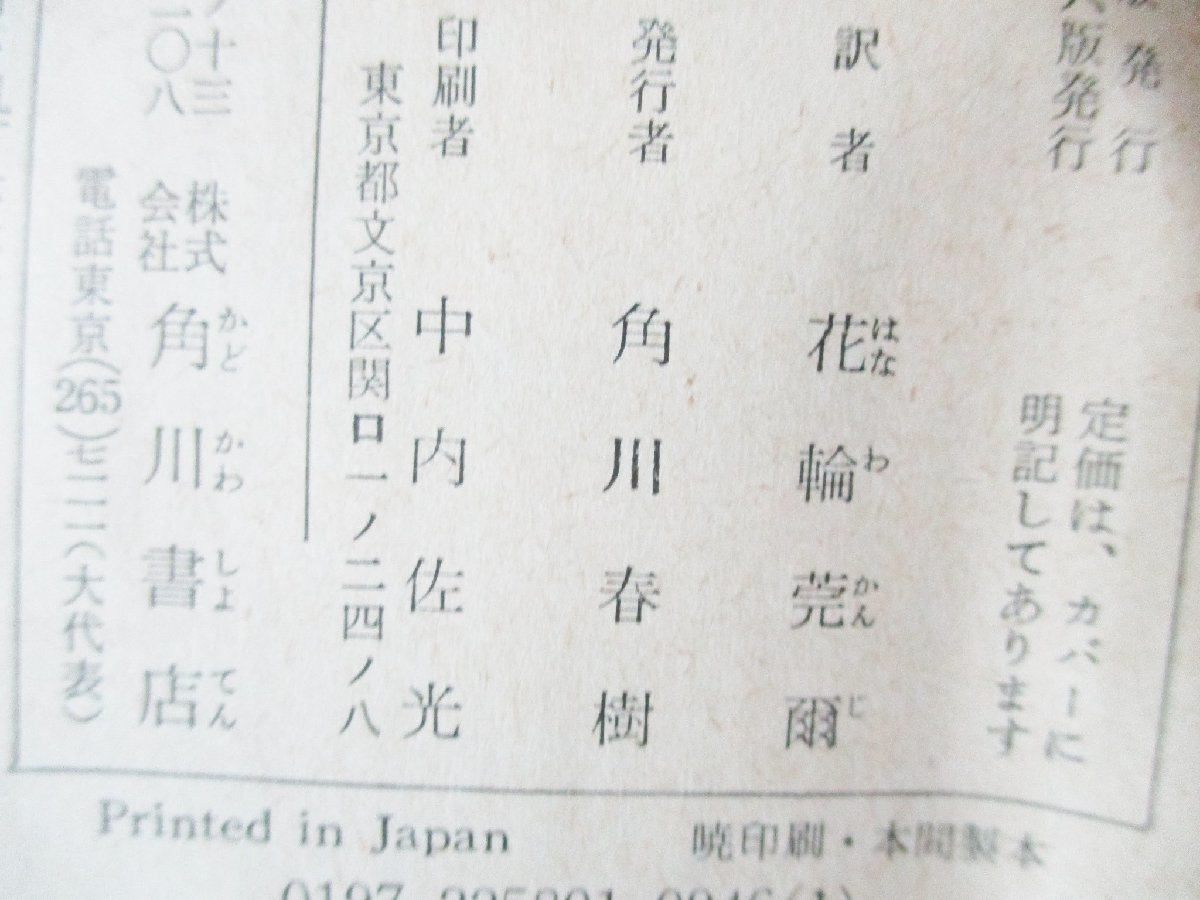 発行
版発行
定価は、カバーに
明記してあります
訳者 花輪莞爾
はなわかんじ
発行者 角川春樹
印刷者 中内佐光
東京都文京区関口一ノ二四ノ八
株式会社 角川書店
かどかわしょてん
電話東京(265)七一一一(大代表)
ノ十三
二〇八
Printed in Japan
暁印刷・本間製本